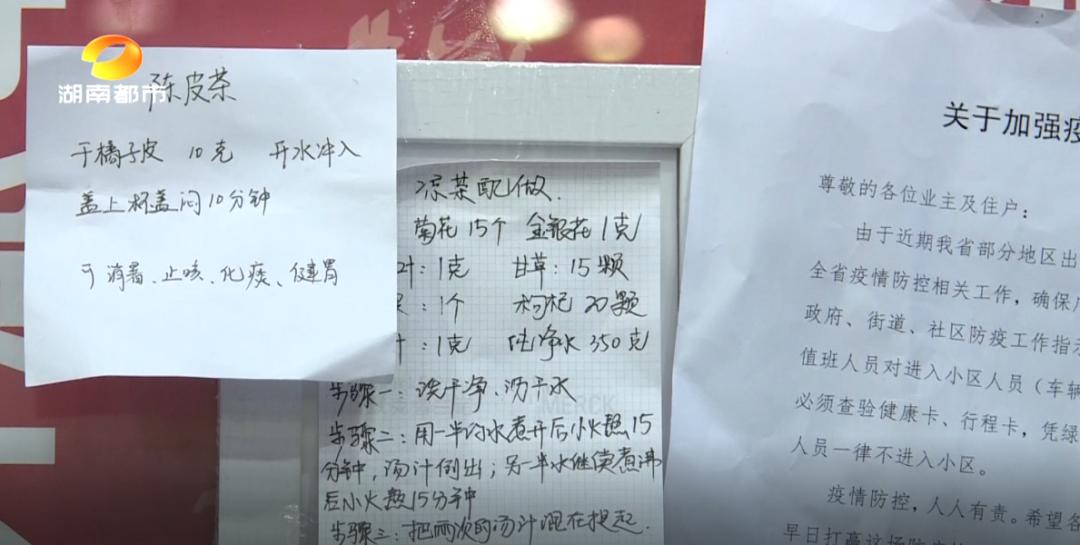 湖南都市
陈皮茶
干橘子皮 10克 开水冲入
盖上杯盖闷10分钟
可消暑、止咳、化痰、健胃
凉茶配做
菊花15个 金银花1克
叶:1克 甘草:15颗
:1个 枸杞20颗
:1克 纯净水350克
步骤一:洗干净、沥干水
MERCK
步骤二:用一半的水煮开后小火熬15
分钟,汤汁倒出;另一半水继续煮沸
后小火熬15分钟
步骤三:把两次的汤汁混在
关于加强疫
尊敬的各位业主及住户:
由于近期我省部分地区出
全省疫情防控相关工作,确保
政府、街道、社区防疫工作指示
值班人员对进入小区人员(车辆
必须查验健康卡、行程卡,凭绿
人员一律不进入小区。
疫情防控,人人有责。希望各
早日打赢这场防